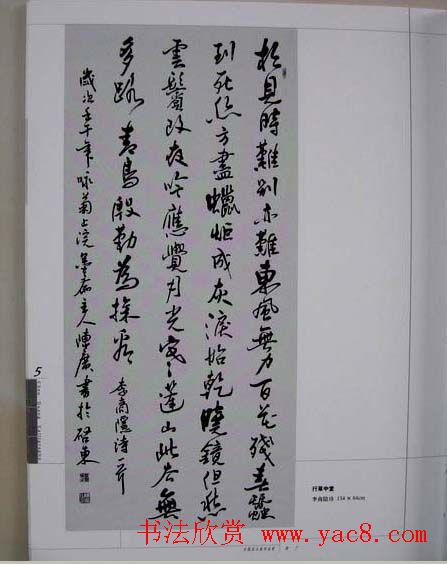 相見時難別亦難東風無力百花殘春蠶
到死絲方盡蠟炬成灰淚始乾曉鏡但愁
雲鬢改夜吟應覺月光寒蓬山此去無
多路青鳥殷勤為探看 李商隱詩
歲次壬午年咏菊上浣主人陳廣書於啓東
5
行草中堂
李商隐诗 134×64cm
书法欣赏 www.yac8.com